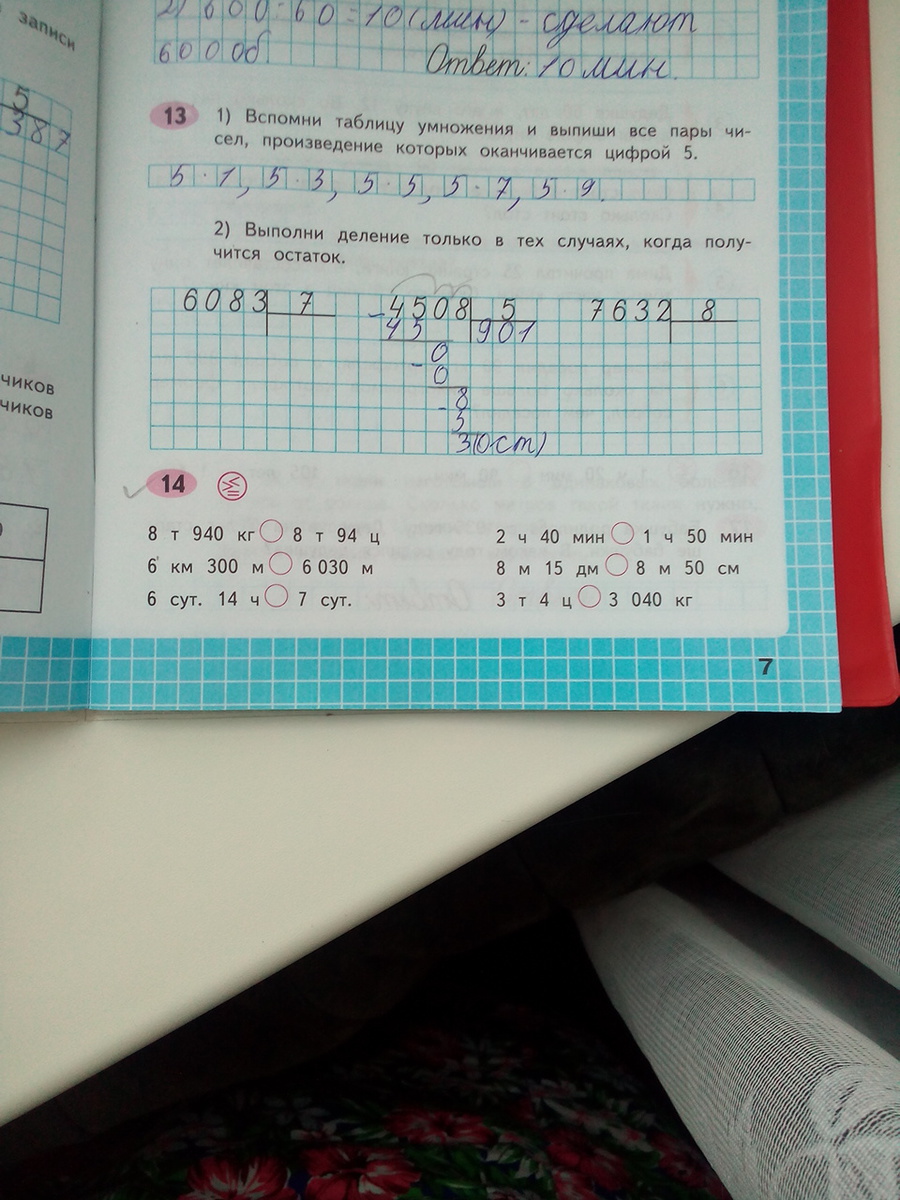 записи
5
387
2) 600:60=10(мин) - сделают
600 об.
Ответ: 10 мин.
13 1) Вспомни таблицу умножения и выпиши все пары чи-
сел, произведение которых оканчивается цифрой 5.
5·1, 5·3, 5·5, 5·7, 5·9.
2) Выполни деление только в тех случаях, когда полу-
чится остаток.
6083 7 -4508 5 7632 8
45 901
-0
0
-8
5
3(ост)
чиков
чиков
14
8 т 940 кг 8 т 94 ц 2 ч 40 мин 1 ч 50 мин
6 км 300 м 6 030 м 8 м 15 дм 8 м 50 см
6 сут. 14 ч 7 сут. 3 т 4 ц 3 040 кг
7